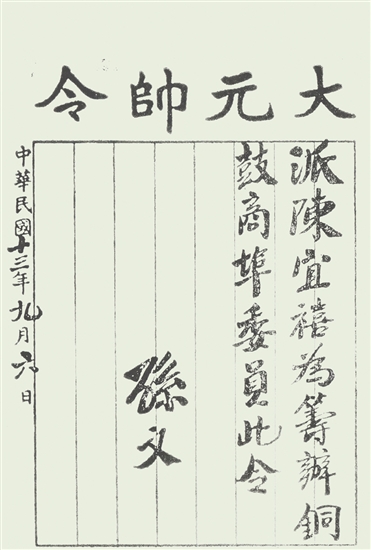 大元帥令
派陳宜禧為籌辦銅
鼓商埠委員此令
孫文
中華民國十三年九月六日